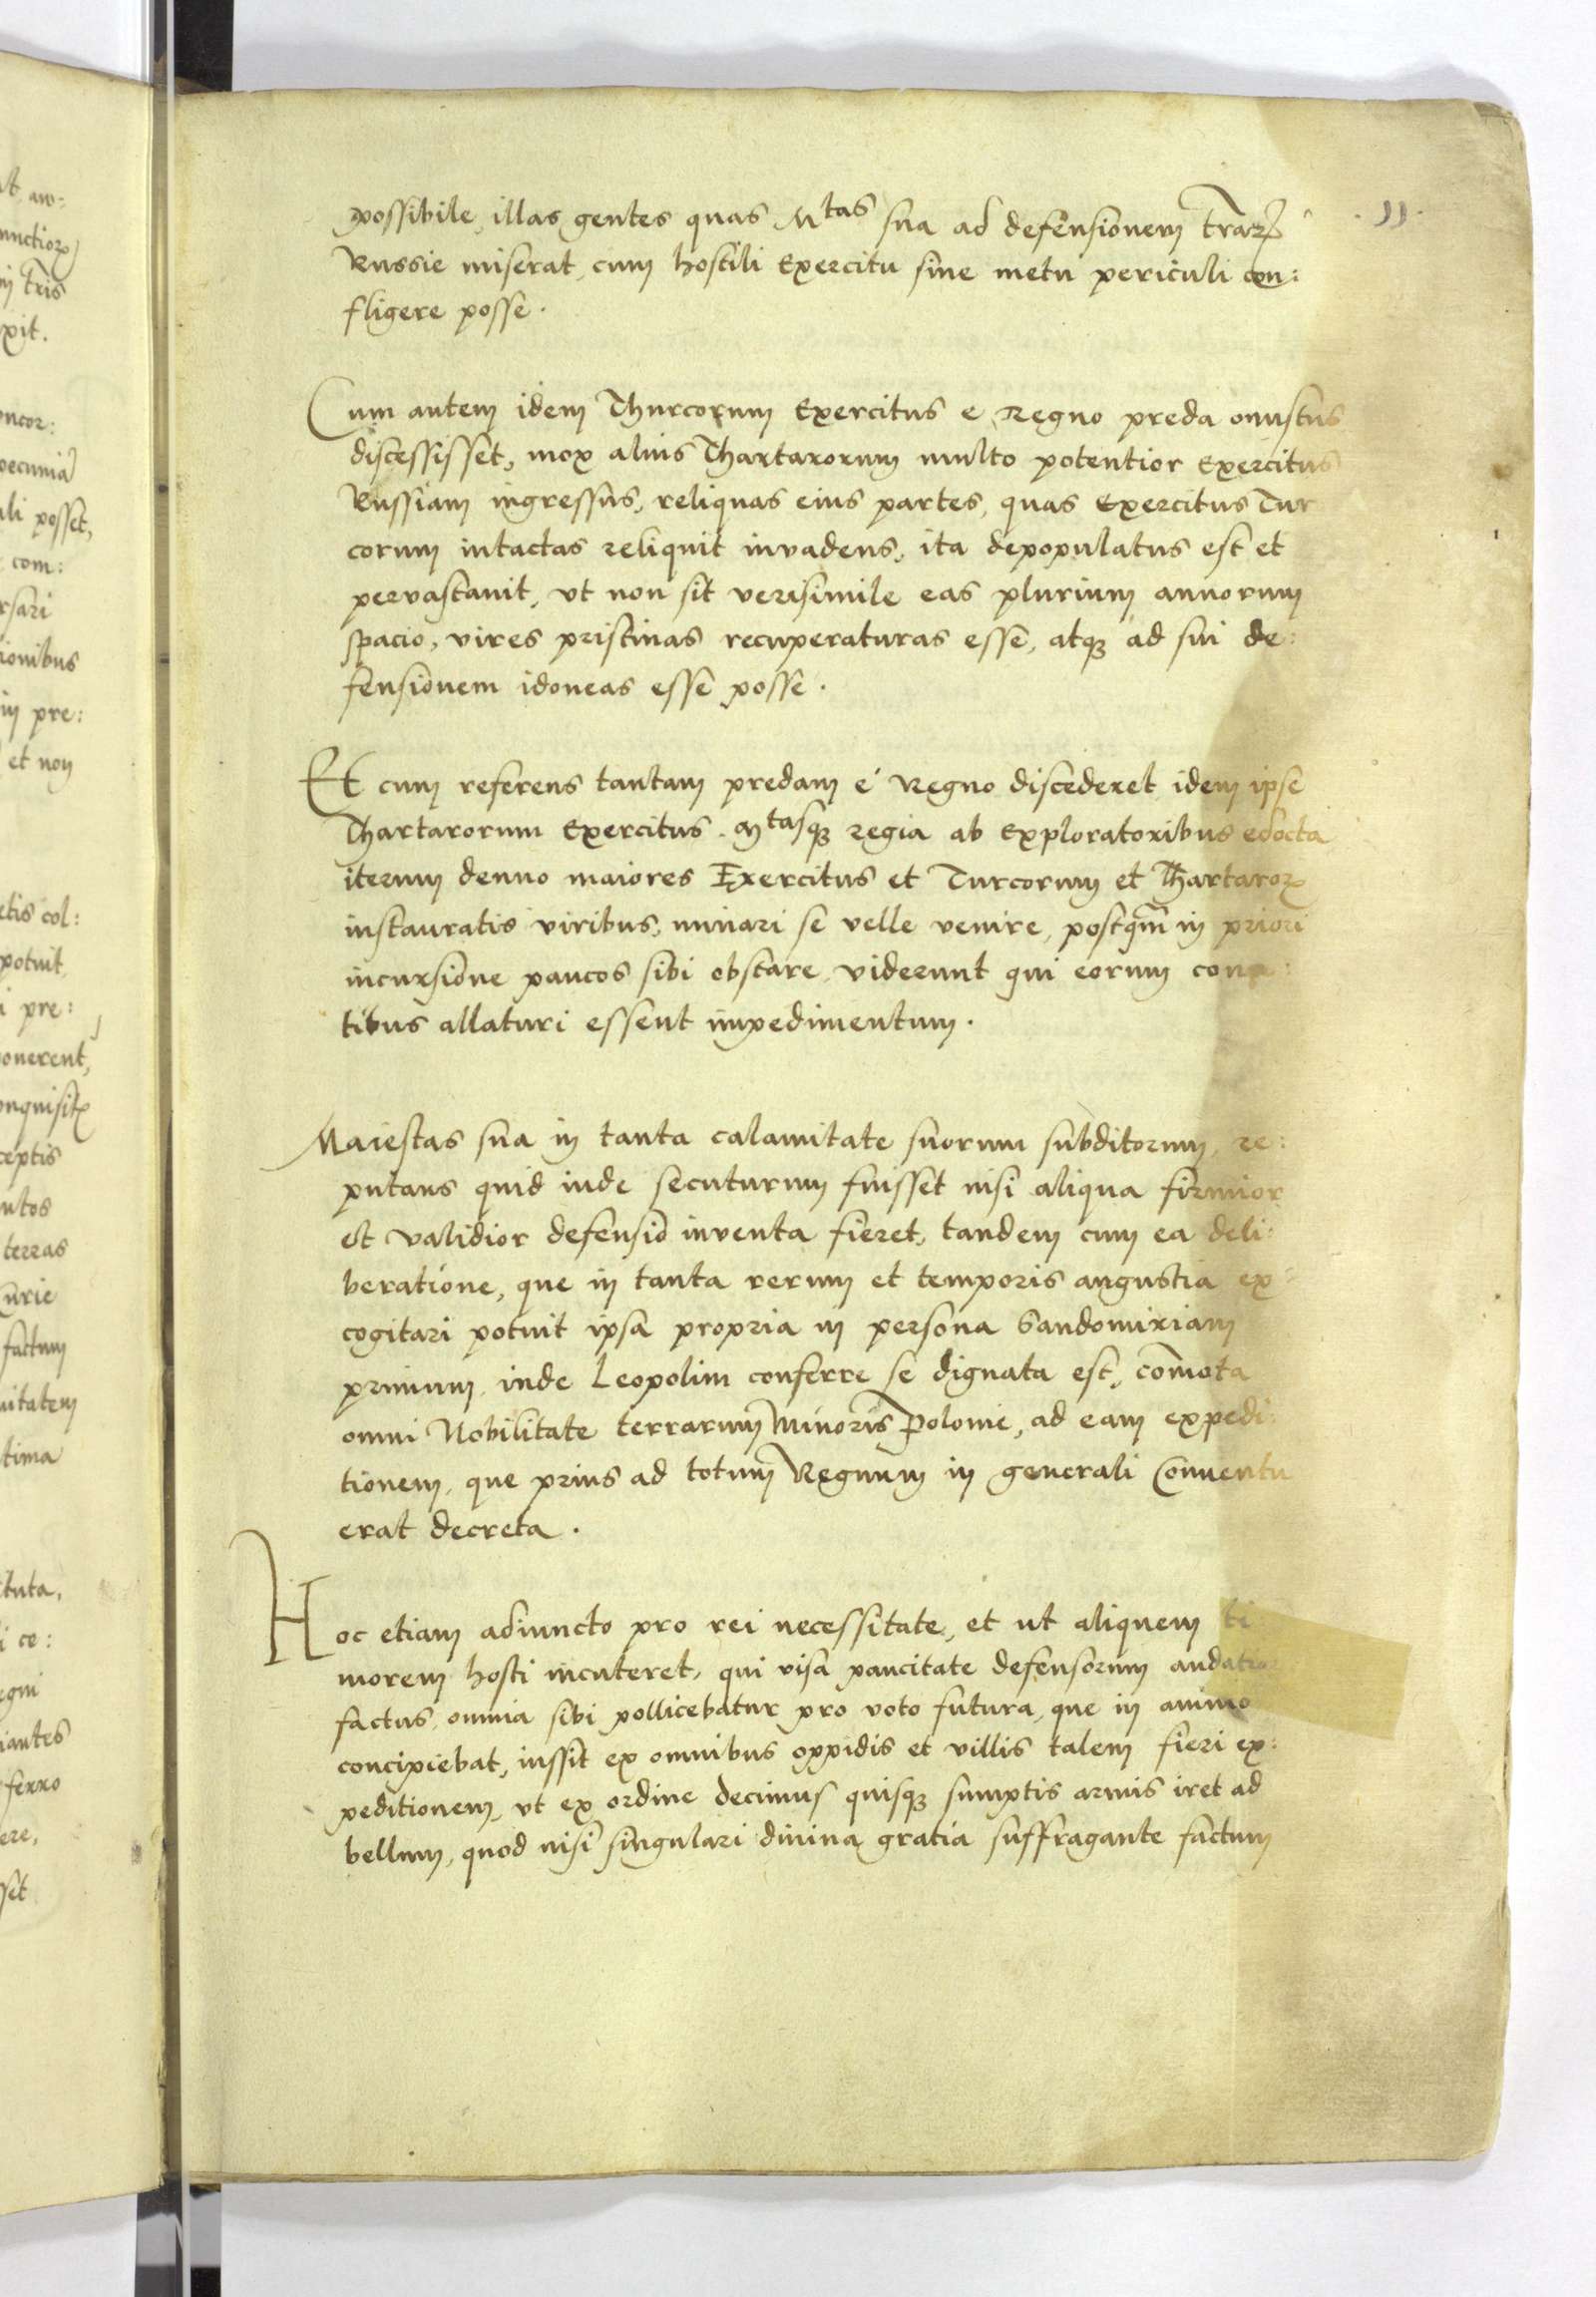 possibile, illas gentes quas Mtas sua ad defensionem trarꝝ
Russie miserat, cum hostili Exercitu sine metu periculi con:
fligere posse.
.11.
Cum autem idem Thurcorum Exercitus e Regno preda onustus
discessisset, mox alius Thartarorum multo potentior Exercitus
Russiam ingressus, reliquas eius partes, quas Exercitus Tur
corum intactas reliquit invadens, ita depopulatus est et
pervastauit, vt non sit verisimile eas plurium annorum
spacio, vires pristinas recuperaturas esse, atqꝫ ad sui de:
fensionem idoneas esse posse.
Et cum referens tantam predam e Regno discederet idem ipse
Thartarorum Exercitus, Mtasqꝫ regia ab Exploratoribus edocta
iterum denuo maiores Exercitus et Turcorum et Thartaroꝝ
instauratis viribus, minari se velle venire, postqm̄ in priori
incursione paucos sibi obstare viderunt qui eorum cona:
tibus allaturi essent impedimentum.
Maiestas sua in tanta calamitate suorum subditorum, re:
putans quid inde secuturum fuisset nisi aliqua firmior
et validior defensio inventa fieret, tandem cum ea deli:
beratione, que in tanta rerum et temporis angustia ex:
cogitari potuit ipsa propria in persona Sandomiriam
primum, inde Leopolim conferre se dignata est, com̄ota
omni Nobilitate terrarum Minoris Polonie, ad eam expedi:
tionem, que prius ad totum Regnum in generali Conuentu
erat decreta.
Hoc etiam adiuncto pro rei necessitate, et ut aliquem ti
morem hosti incuteret, qui visa paucitate defensorum audatior
factus, omnia sibi pollicebatur pro voto futura, que in animo
concipiebat, iussit ex omnibus oppidis et villis talem fieri ex:
peditionem, vt ex ordine decimus quisqꝫ sumptis armis iret ad
bellum, quod nisi singulari diuina gratia suffragante factum